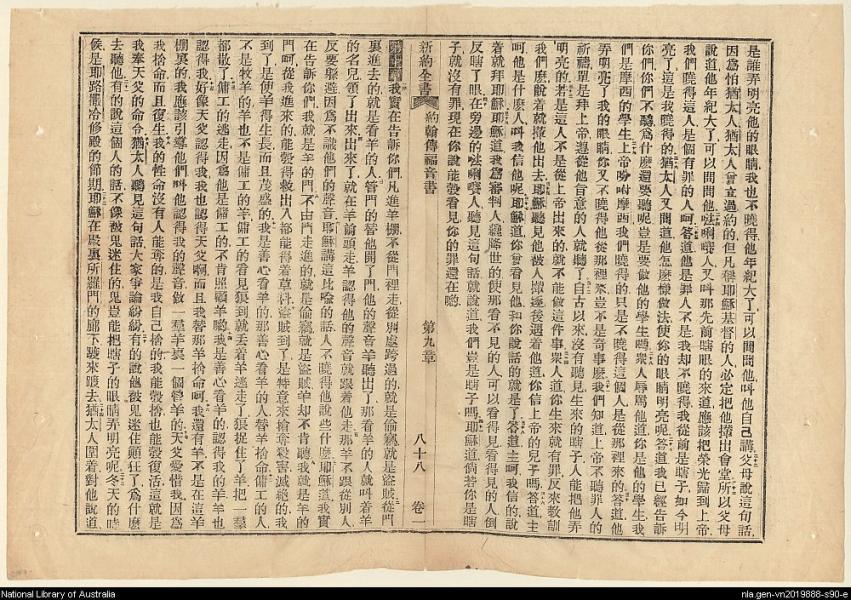 是誰弄明亮他的眼睛我也不曉得他年紀大了可以問問他叫他自己講父母說這句話
因爲怕猶太人猶太人曾立過約的但凡稱耶穌基督的人必定把他攆出會堂所以父母
說道他年紀大了可以問問他人又叫那先前瞎眼的來道應該把榮光歸到上帝
我們曉得這人是個有罪的人呵答道他是罪人不是我却不曉得我從前是瞎子如今明
亮了這是我曉得的猶太人又問道他怎麼樣做法使你的眼睛明亮呢答道我已經告訴
你們你們不聽爲什麼還要聽呢豈是要做他的學生嗎衆人辱罵他道你是他的學生我
們是摩西的學生上帝吩咐摩西我們曉得的只是不曉得這個人是從那裡來的答道他
弄明亮了我的眼睛你又不曉得他從那裡來豈不是奇事麼我們知道上帝不聽罪人的
祈禱單是拜上帝遵從他旨意的人就聽了自古以來沒有聽見生來的瞎子人能把他弄
明亮的若是這人不是從上帝出來的就不能做這件事衆人道你生來就有罪反來教訓
我們麼說着就攆他出去耶穌聽見他被人攆逐後遇着他道你信上帝的兒子嗎答道主
呵他是什麼人叫我信他呢耶穌道你曾看見他和你說話的就是了答道主呵我信的說
着就拜耶穌耶穌道我爲審判人纔降世的使那看不見的人可以看見看得見的人倒
反瞎了眼在旁邊的人聽見這句話就說道我們豈是瞎子嗎耶穌道倘若你是瞎
子就沒有罪現在你說能彀看見你的罪還在喲
新約全書 約翰傳福音書 第九章 八十八 卷一
第十章 我實在告訴你們凡進羊棚不從門裡走從別處跨過的就是偷竊就是盜賊從門
裏進去的就是看羊的人管門的替他開了門他的聲音羊聽出了那看羊的人就叫着羊
的名兒領了出來出來了就在羊前頭走羊認得他的聲音就跟着他走那羊不跟從別人
反要躲避因爲不識他們的聲音耶穌講這比喻的話人不曉得他說些什麼耶穌道我實
在告訴你們我就是羊的門不由門走進的就是偷竊就是盜賊羊却不肯聽我就是羊的
門呵從我進來的能彀得救出入都能得着草料盜賊到了是特意來搶奪殺害滅絶的我
到了是使羊得生長而且茂盛的我是善心看羊的那善心看羊的人替羊捨命傭工的人
不是牧羊的羊也不是傭工的羊傭工的看見狼到就丟着羊逃走了狼捉住了羊把一羣
都散了傭工的逃走因爲他是傭工的不肯照顧羊喲我是善心看羊的認得我的羊羊也
認得我好像天父認得我我也認得天父啊而且我替那羊捨命呵我還有羊不是在這羊
棚裏的我應該引導他們叫他認得我的聲音做一羣羊裏一個管羊的天父愛惜我因爲
我捨命而且復生我的性命沒有人能奪的是我自己捨的我能彀捨也能彀復活這就是
我奉天父的命令猶太人聽見這句話大家爭論紛紛有的說他被鬼迷住顛狂了爲什麼
去聽他有的說這個人的話不像被鬼迷住的鬼豈能把瞎子的眼睛弄明亮呢冬天的時
候是耶路撒冷修殿的節期耶穌在殿裏所羅門的廊下踱來踱去猶太人圍着對他說道
National Library of Australia
nla.gen-vn2019888-s90-e